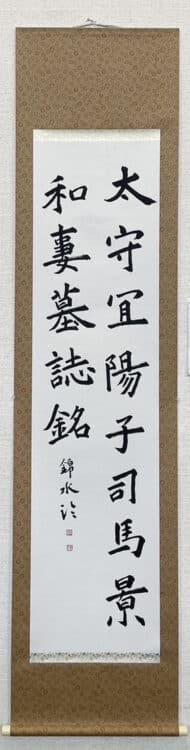 太守冝陽子司馬景
和妻墓誌銘
錦水臨